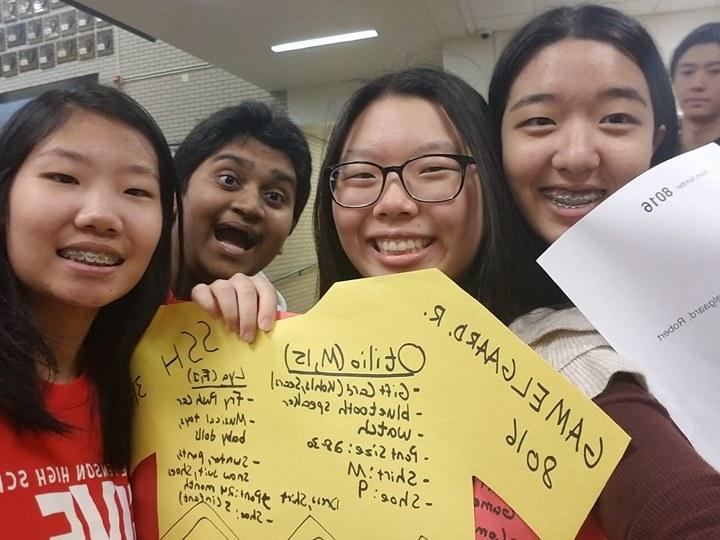 GAMELGAARD. R.
8016
Otilio (M, 15)
- Gift Card (Kohls, Sears)
- bluetooth speaker
- watch
- Pant Size:
- Shirt: M
- Shoe: 9
SSH
Lya (F, 2)
- Musical toys,
baby doll
- Sweater, pants,
snow suit, shoes
Pant: 24 month
Dress, Shirt
- Shoe: 5 (infant)
Game
Number: 8016
elgaard, Robert
ENSON HIGH SC